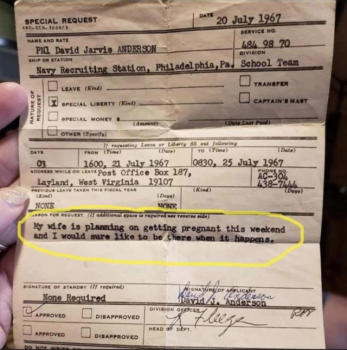 SPECIAL REQUEST
DATE 20 July 1967
NAME AND RATE
SERVICE NO.
PN1 David Jarvis ANDERSON 484 98 70
SHIP OR STATION
DIVISION
Navy Recruiting Station, Philadelphia, Pa. School Team
NATURE OF REQUEST
LEAVE (Kind)
TRANSFER
X SPECIAL LIBERTY (Kind)
CAPTAIN'S MAST
SPECIAL MONEY $ (Amount) (Date Last Paid)
OTHER (Specify)
If requesting Leave or Liberty fill out following
DAYS FROM (Time) (Date) TO (Time) (Date)
03 1600, 21 July 1967 0830, 25 July 1967
ADDRESS WHILE ON LEAVE PHONE NO.
Post Office Box 187, AC-304
Layland, West Virginia 19107 438-7444
PREVIOUS LEAVE TAKEN THIS FISCAL YEAR (Kind) (Days) (Kind) (Days)
NONE NONE
REASON FOR REQUEST (If additional space is required use reverse side)
My wife is planning on getting pregnant this weekend
and I would sure like to be there when it happens.
SIGNATURE OF STANDBY (If required)
SIGNATURE OF APPLICANT
None Required
David J. Anderson
APPROVED DISAPPROVED DIVISION OFFICER
APPROVED DISAPPROVED HEAD OF DEPT.